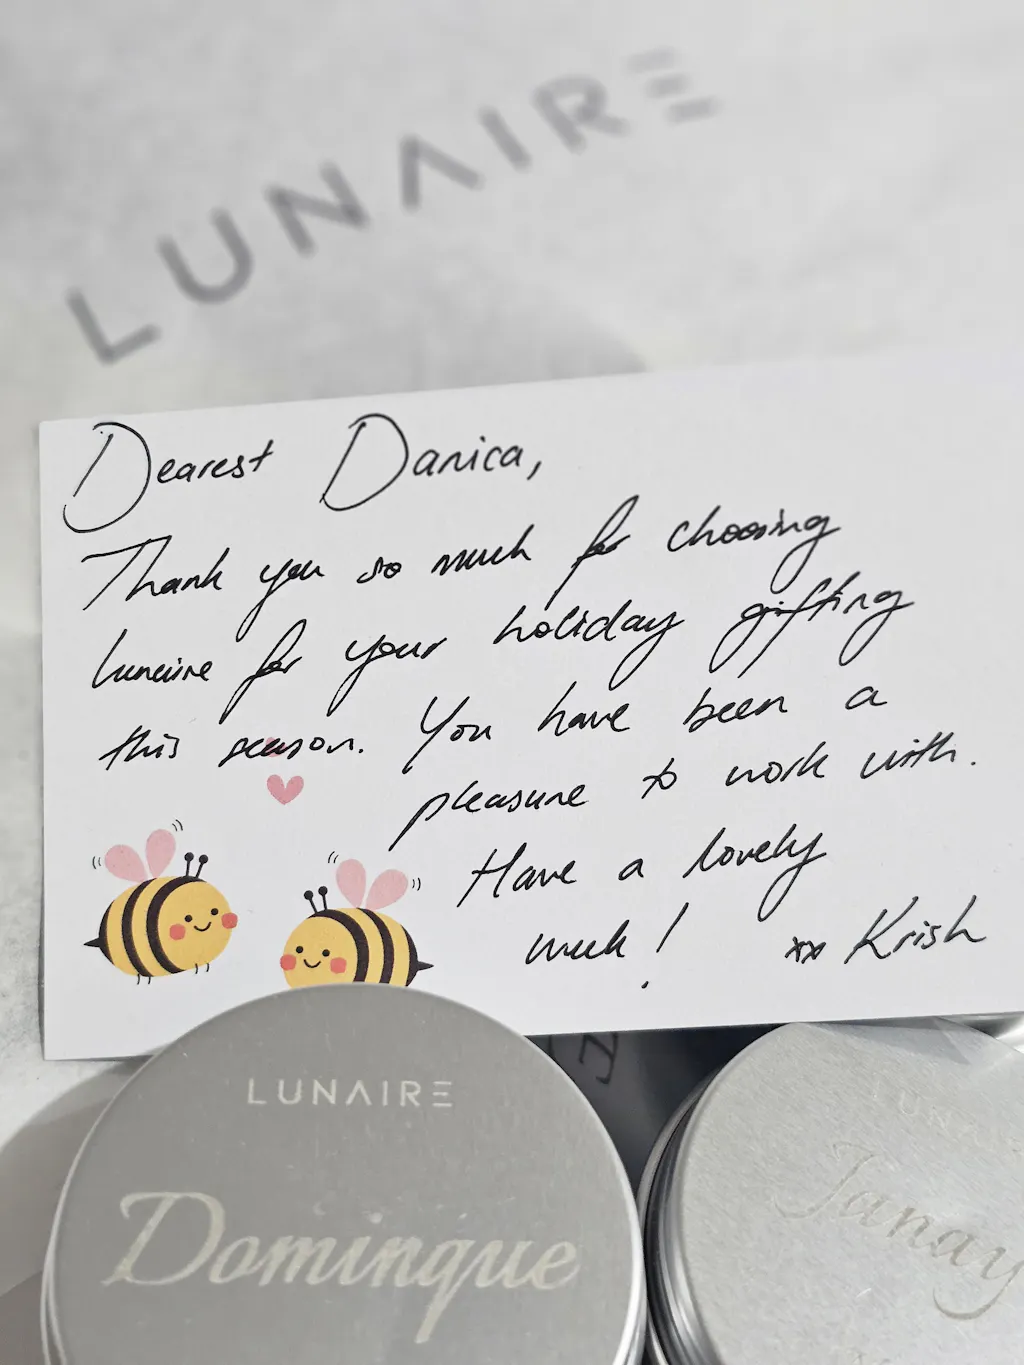 LUNAIRE
Dearest Danica,
Thank you so much for choosing
Lunaire for your holiday gifting
this season. You have been a
pleasure to work with.
Have a lovely
week!
xx Krish
LUNAIRE
Dominque
LUNA
Janay